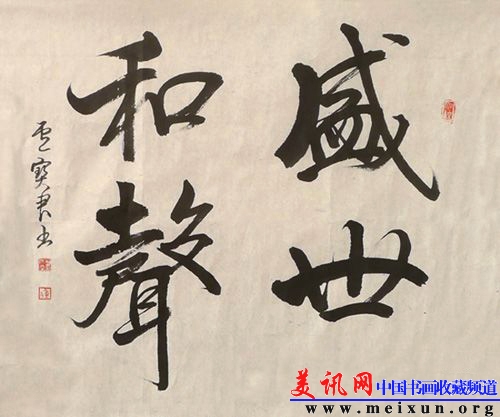 盛世
和聲
寶君书
美讯网 中国书画收藏频道
www.meixun.org